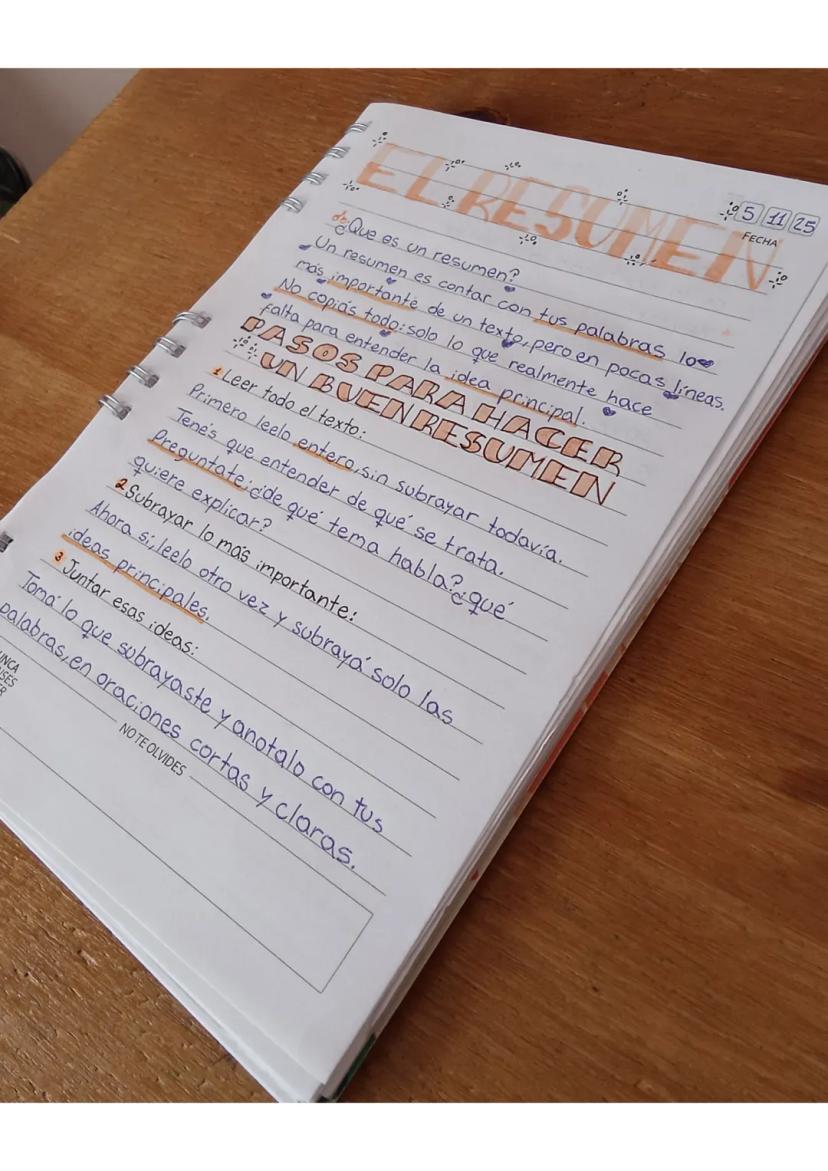 EL RESUMEN
5 11 25
FECHA
¿Que es un resumen?
Un resumen es contar con tus palabras lo
más importante de un texto, pero en pocas líneas.
No copiás todo: solo lo que realmente hace
falta para entender la idea principal.
PASOS PARA HACER
UN BUEN RESUMEN
1 Leer todo el texto:
Primero leelo entero, sin subrayar todavía.
Tenés que entender de qué se trata.
Preguntate: ¿de qué tema habla? ¿qué
quiere explicar?
2 Subrayar lo más importante:
Ahora si, leelo otro vez y subrayá solo las
ideas principales.
3 Juntar esas ideas:
Tomá lo que subrayaste y anotalo con tus
palabras, en oraciones cortas y claras.
NO TE OLVIDES